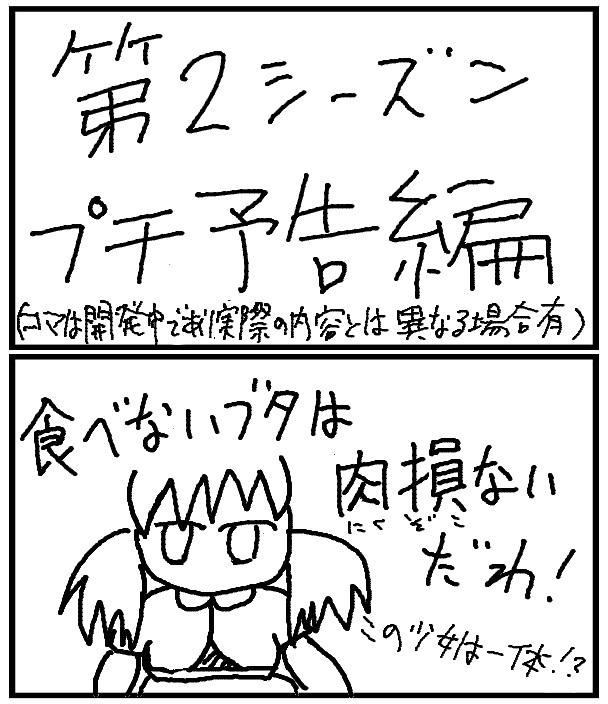 第2シーズン
プチ予告編
(コマは開発中であり実際の内容とは異なる場合有)
食べないブタは
肉損ない
にくぞこ
だわ!
この少女は一体!?